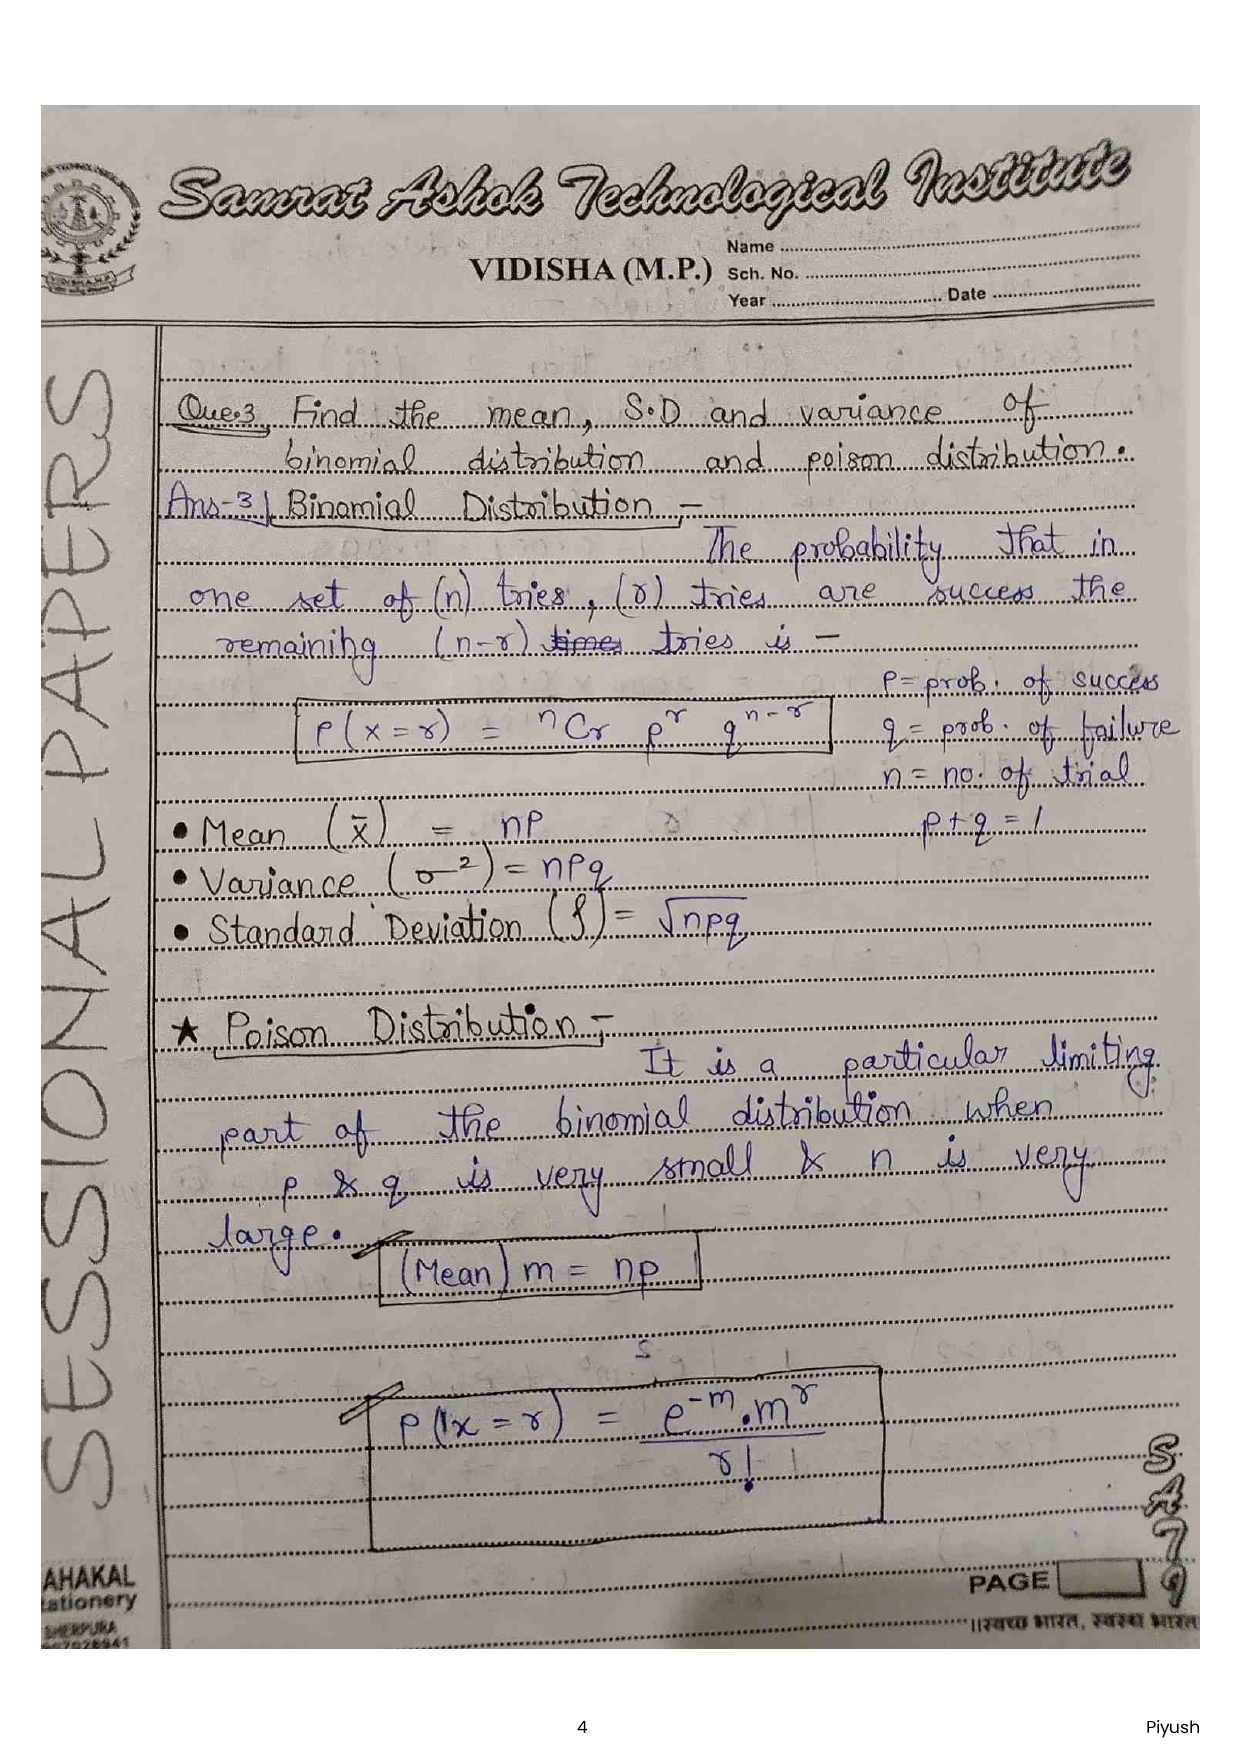 Samrat Ashok Technological Institute
VIDISHA (M.P.)
Name
Sch. No.
Year Date
SESSIONAL PAPERS
Que.3 Find the mean, S.D and variance of
binomial distribution and poison distribution.
Ans-3) Binomial Distribution :-
The probability that in
one set of (n) tries, (r) tries are success the
remaining (n-r) times tries is -
P = prob. of success
P(x=r) = ⁿCr pʳ qⁿ⁻ʳ
q = prob. of failure
n = no. of trial
• Mean (x̄) = nP
p+q = 1
• Variance (σ²) = nPq
• Standard Deviation (ʃ) = √npq
★ Poison Distribution :-
It is a particular limiting
part of the binomial distribution when
p & q is very small & n is very
large.
(Mean) m = np
P(x=r) = e⁻ᵐ.mʳ / r!
SATI
PAGE
AHAKAL
tationery
SHERPURA
॥स्वच्छ भारत, स्वस्थ भारत
4
Piyush